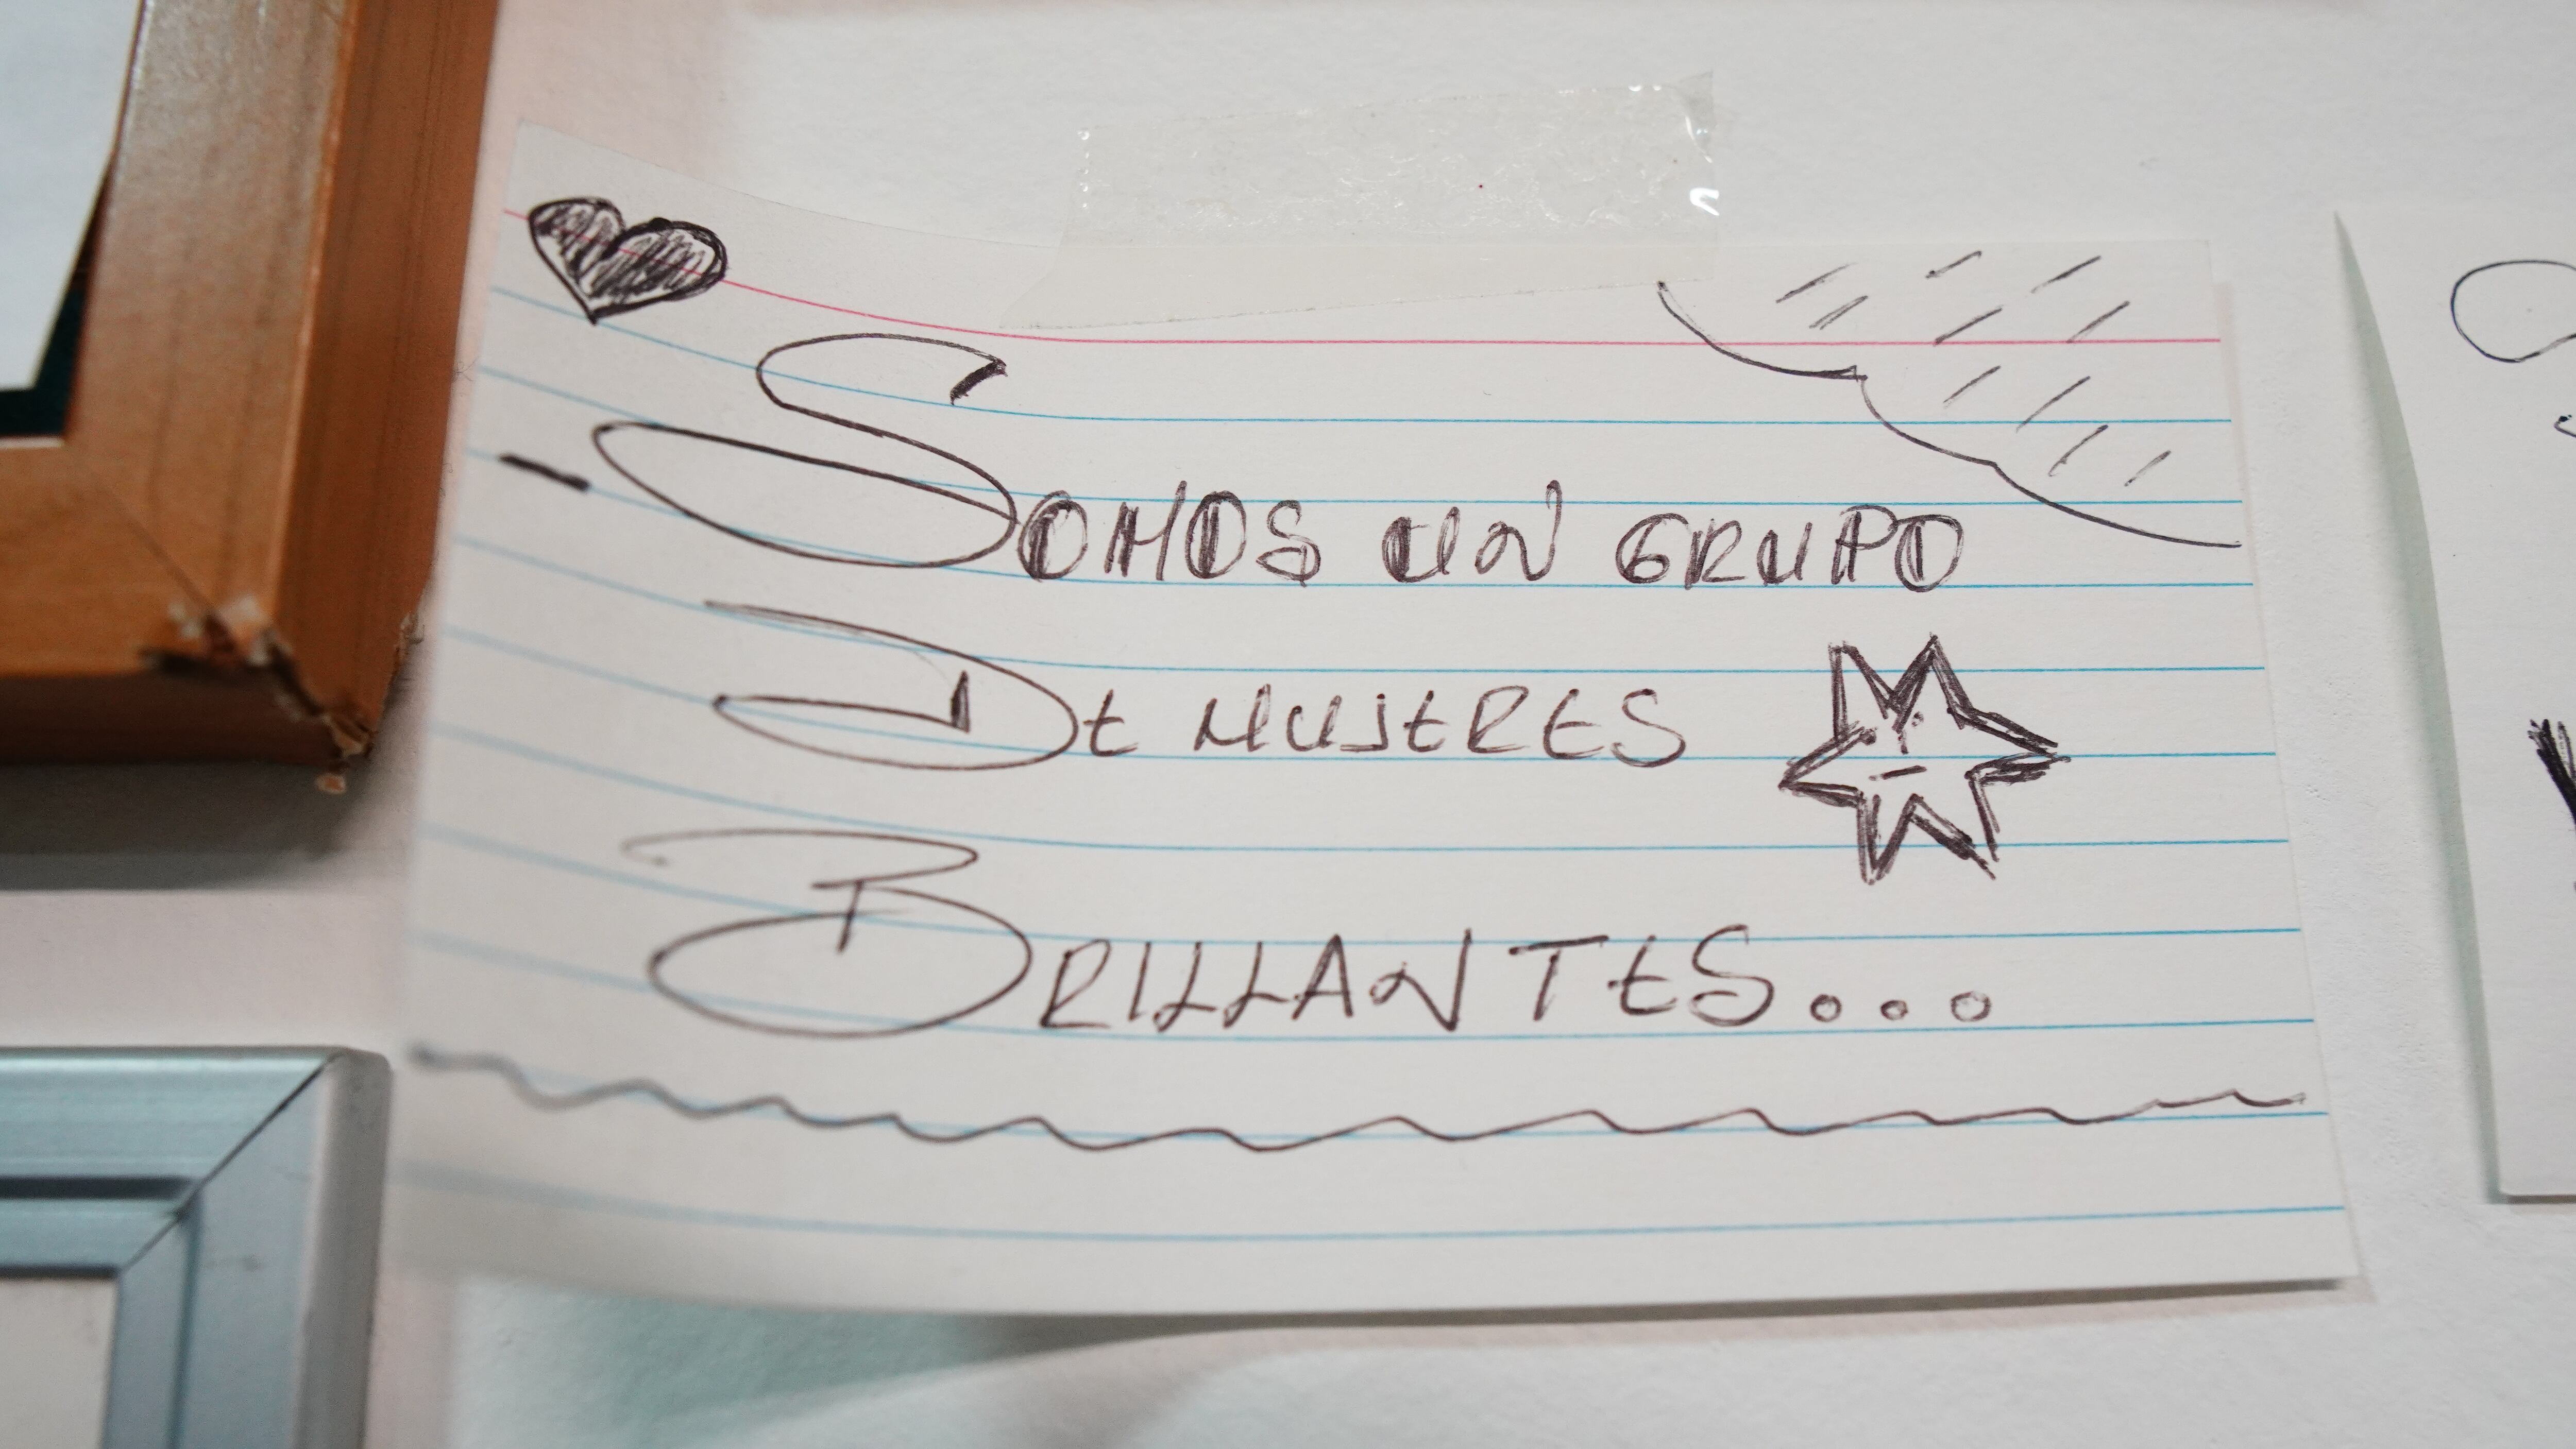 - Somos un grupo
De mujeres
Brillantes...